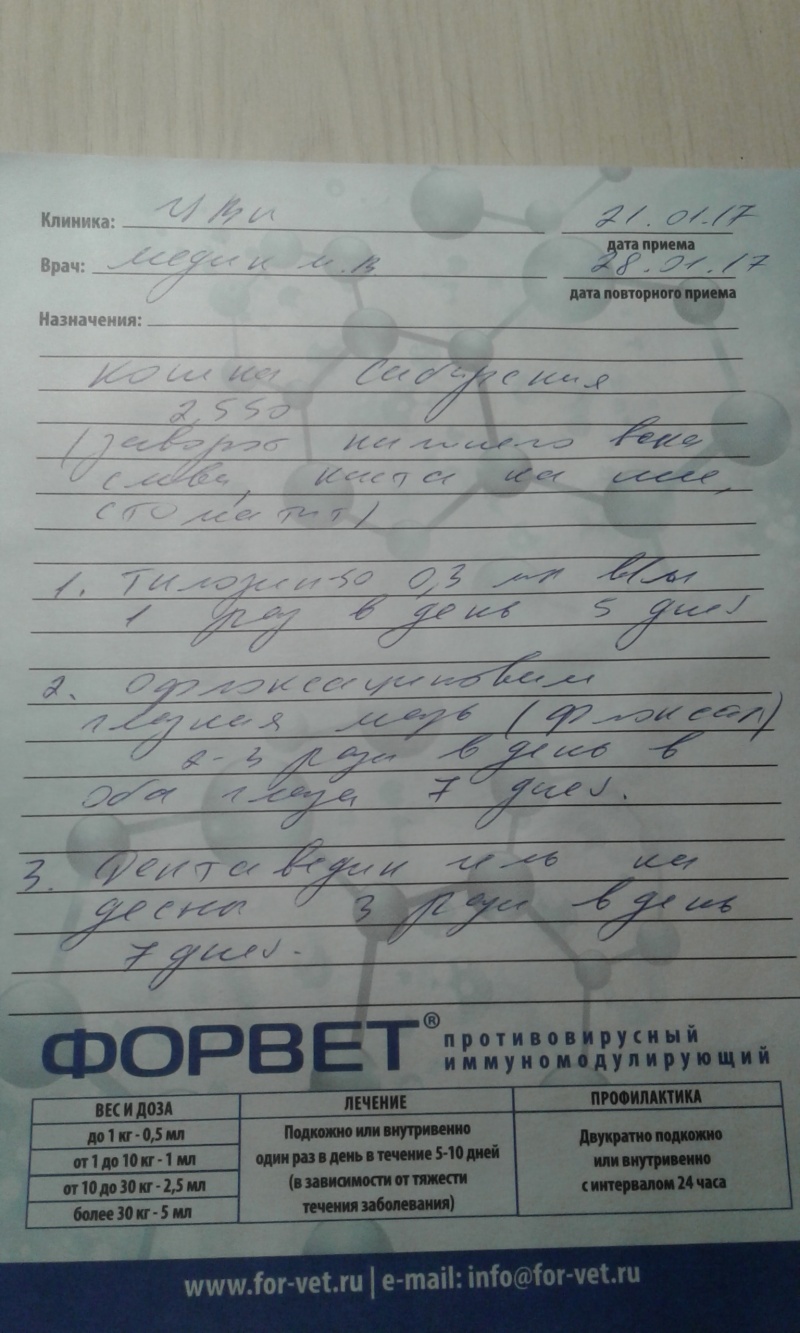 Клиника: 21.01.17
дата приема
Врач: Медик 28.01.17
дата повторного приема
Назначения:
кошка Сибирская
2,550
(заворот нижнего века
слева, киста на шее,
стоматит)
1. Тилозин 50 0,3 мл в/м
1 раз в день 5 дней
2. Офлоксациновая
глазная мазь (флоксал)
2-3 раза в день в
оба глаза 7 дней.
3. Дентаведин гель на
десны 3 раза в день
7 дней.
ФОРВЕТ® противовирусный
иммуномодулирующий
ВЕС И ДОЗА ЛЕЧЕНИЕ ПРОФИЛАКТИКА
до 1 кг - 0,5 мл
от 1 до 10 кг - 1 мл
от 10 до 30 кг - 2,5 мл
более 30 кг - 5 мл
Подкожно или внутривенно
один раз в день в течение 5-10 дней
(в зависимости от тяжести
течения заболевания)
Двукратно подкожно
или внутривенно
с интервалом 24 часа
www.for-vet.ru | e-mail: info@for-vet.ru